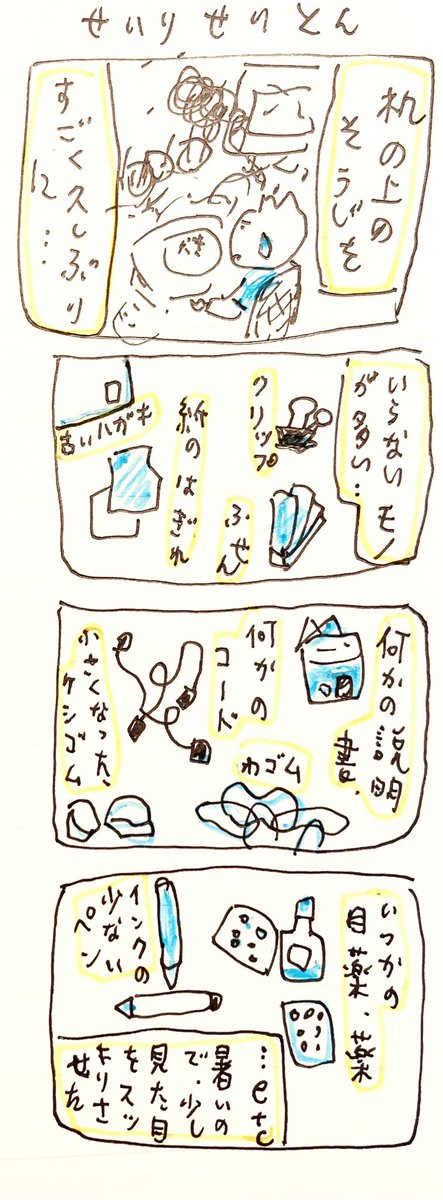 せいりせいとん
机の上の
そうじを
すごく久しぶり
に…
いらないモノ
が多い…
クリップ
ふせん
紙のはぎれ
古いハガキ
何かの説明
書、
何かの
コード
わゴム
小さくなった、
ケシゴム
いつかの
目薬、薬
インクの
少ない
ペン
…etc
暑いの
で、少し
見た目
をスッ
キリさ
せた